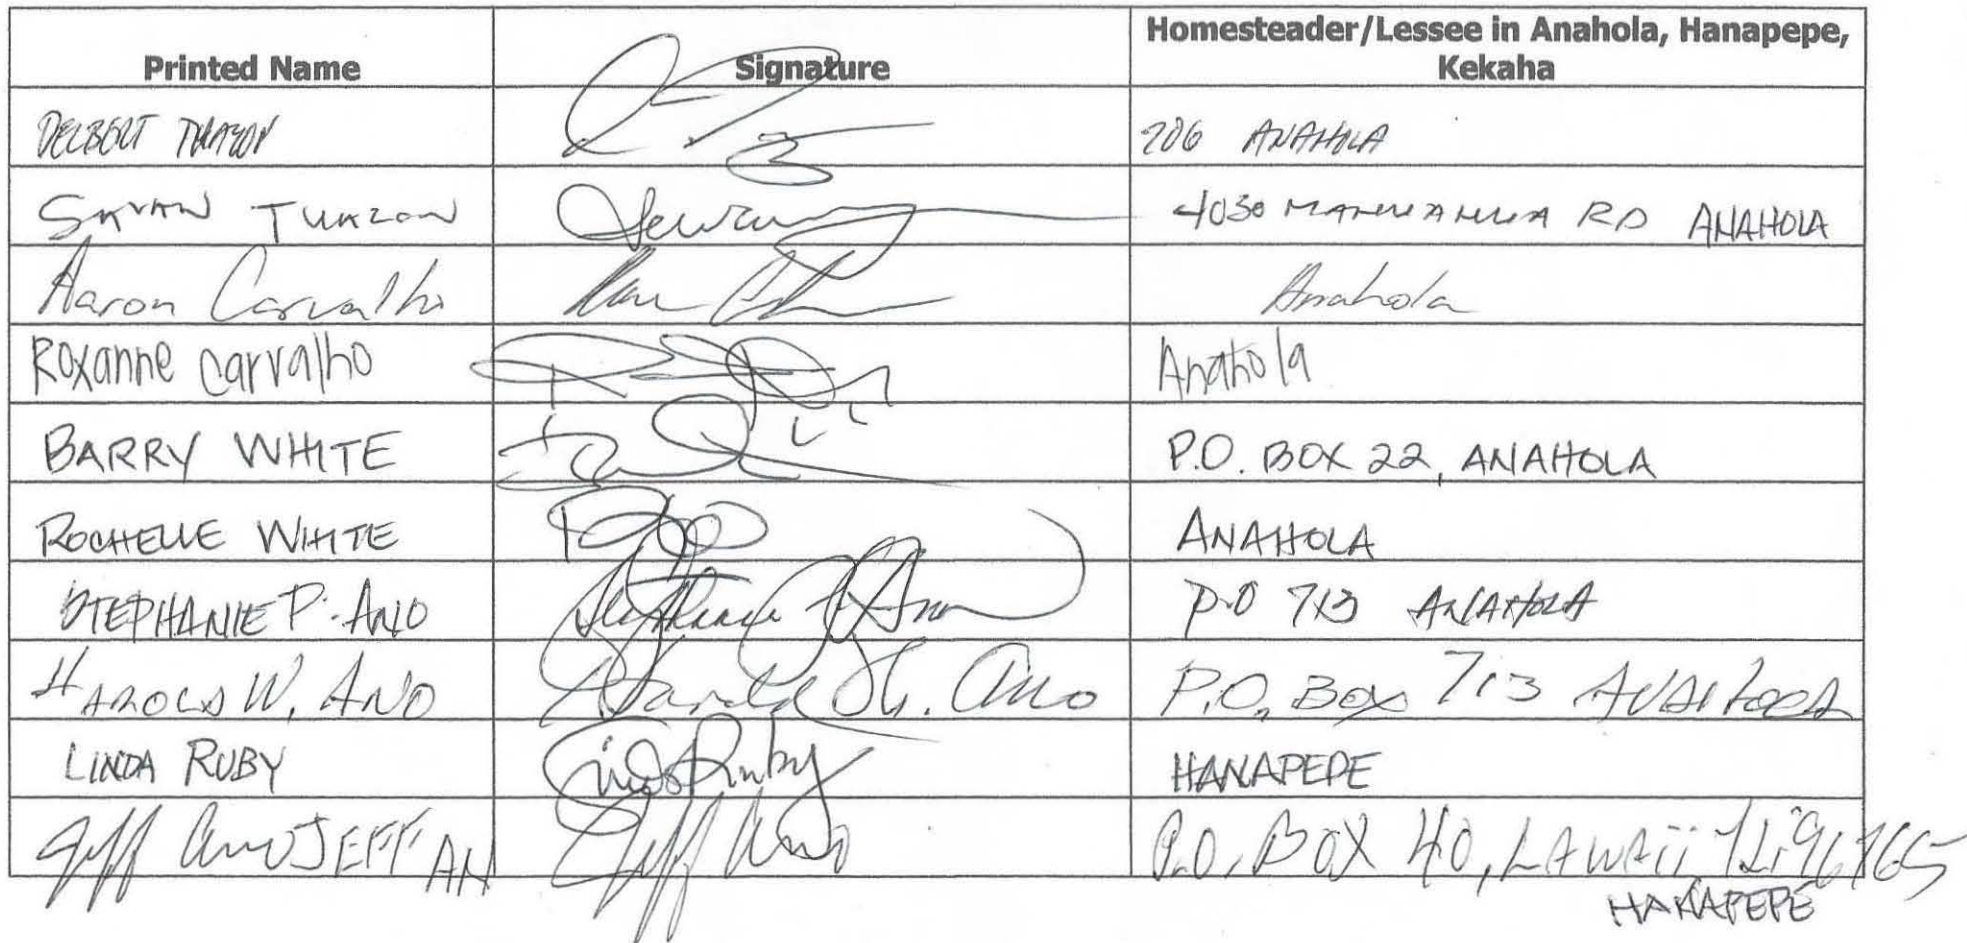 Printed Name Signature Homesteader/Lessee in Anahola, Hanapepe,
Kekaha
DELBERT 206 ANAHOLA
TUAZON 4030 RD ANAHOLA
Aaron Carvalho Anahola
Roxanne Carvalho Anahola
BARRY WHITE P.O. BOX 22, ANAHOLA
ROCHELLE WHITE ANAHOLA
STEPHANIE P. ANO Stephanie P. Ano P.O 713 ANAHOLA
HAROLD W. ANO Harold W. Ano P.O. Box 713 ANAHOLA
LINDA RUBY Linda Ruby HANAPEPE
Jeff Ano JEFF AN Jeff Ano P.O. BOX 40, LAWAii, Hi 96765
HANAPEPE